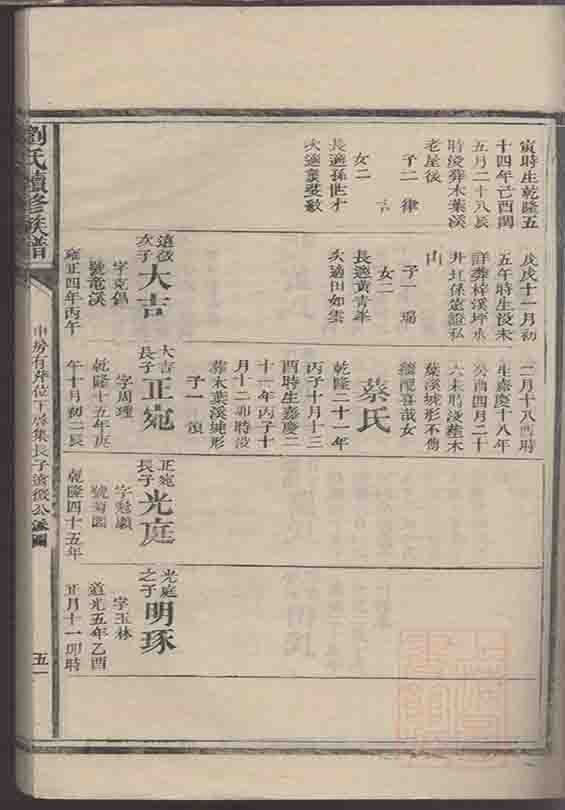 寅時生乾隆五
十四年己酉閏
五月二十八辰
時歿葬木葉溪
老屋後
子二 律
言
女二
長適孫世才
次適龔斐敏
戊戌十一月初
五午時生歿未
詳葬梓溪坪承
井圵係憲證私
山
子一 瑒
女二
長適黃青峯
次適田如雲
遠徵
次子
大吉
字克錫
號竜溪
雍正四年丙午
二月十八酉時
生嘉慶十八年
癸酉四月二十
六未時歿葬木
葉溪坵形不雋
續配喜哉女
蔡氏
乾隆二十一年
丙子十月十三
酉時生嘉慶二
十一年丙子十
月十二卯時歿
葬木葉溪坵形
子一 頌
大吉
長子
正宛
字周理
乾隆十五年庚
午十月初二辰
正宛
長子
光庭
號菊園
乾隆四十五年
光庭
之子
明琢
字玉林
道光五年乙酉
正月十一卯時
劉氏續修族譜
申房有昇位下啓集長子遠徵公派圖
五一